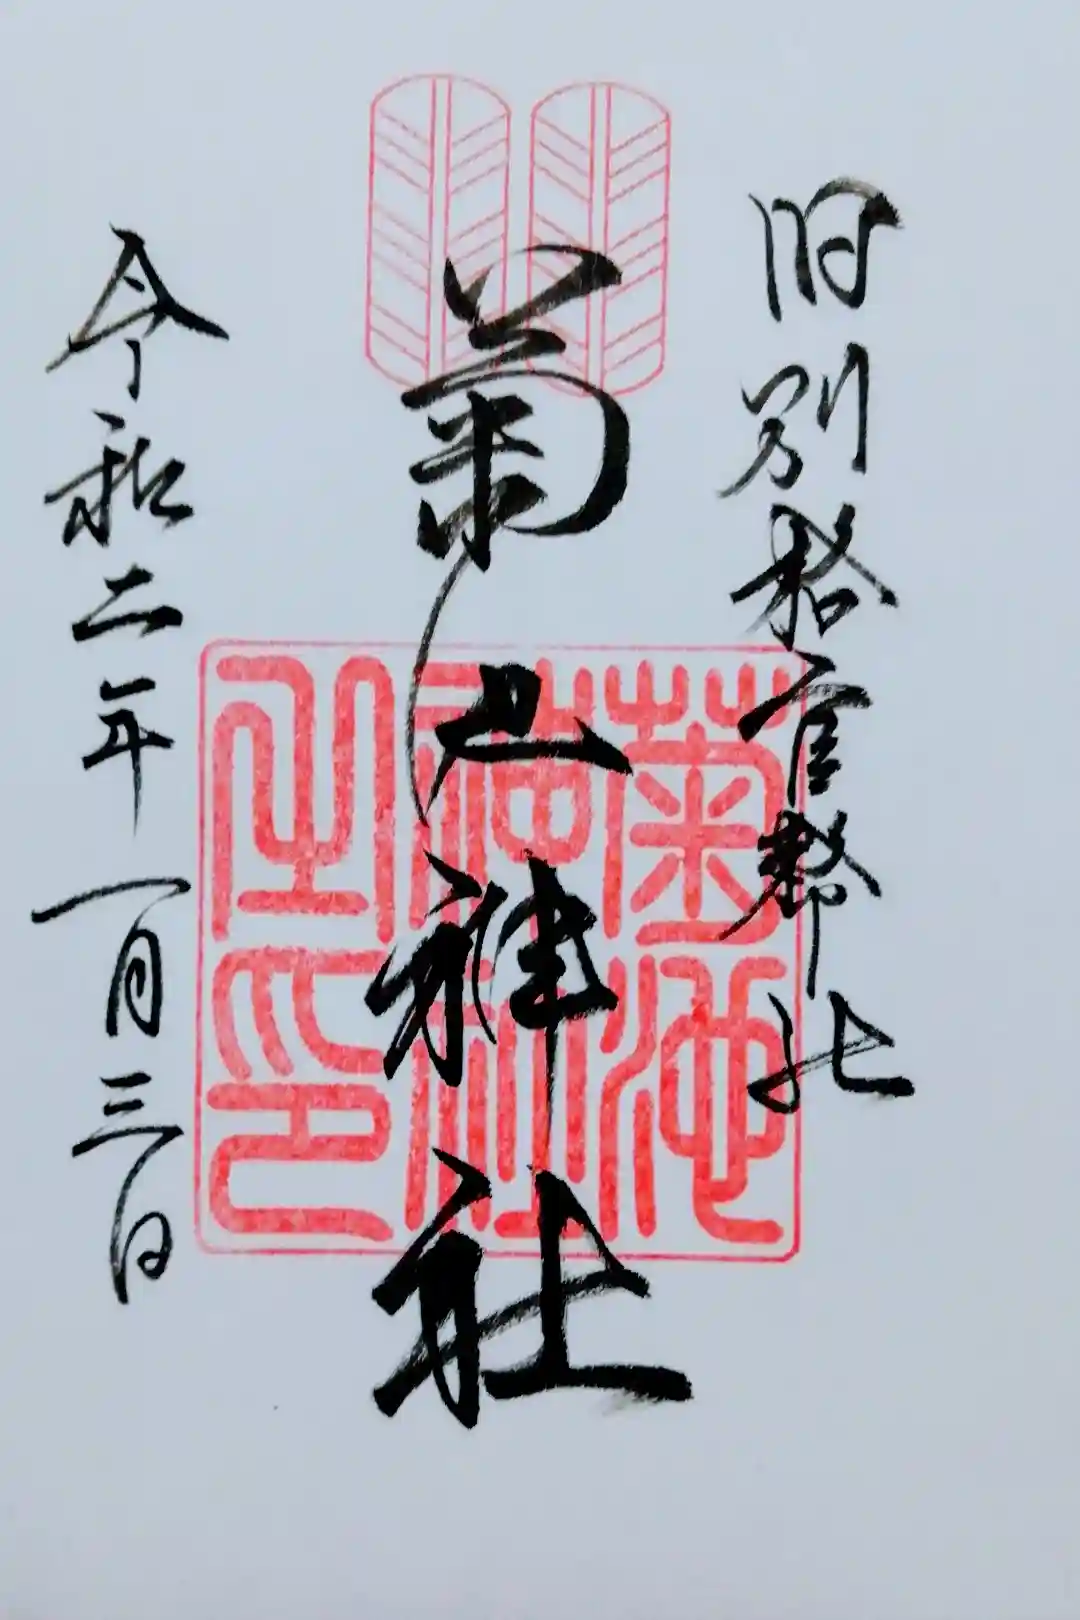 旧別格官幣社
菊池神社
令和二年一月三日
菊池
神社
之印